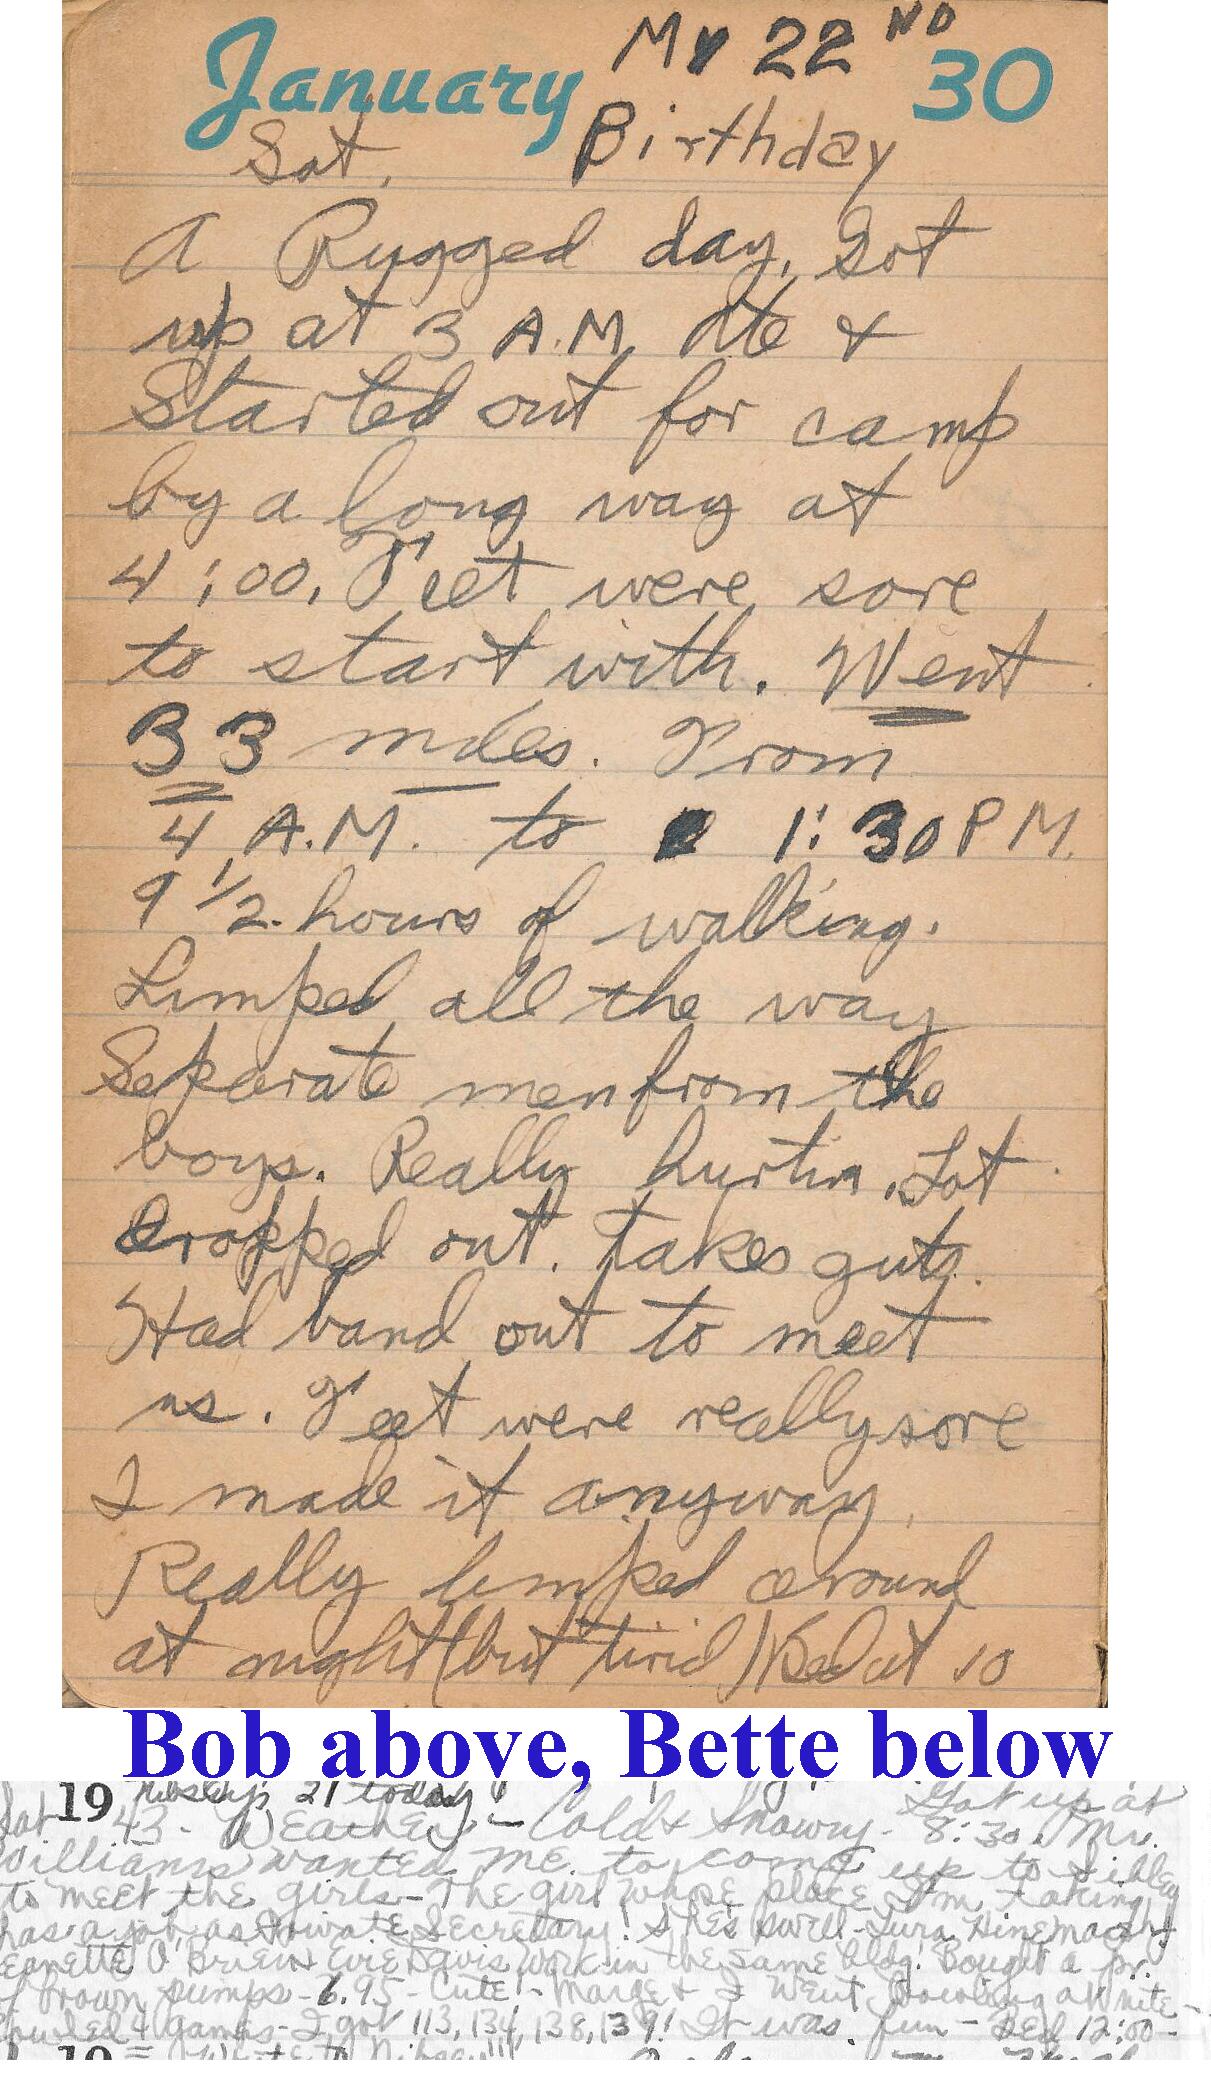 January My 22ND 30
Sat, Birthday
A Rugged day, Got
up at 3 A.M. Ate &
Started out for camp
by a long way at
4:00. Feet were sore
to start with. Went
33 miles. From
4 A.M. to 1:30 PM.
9 1/2 hours of walking.
Limped all the way
Seperate men from the
boys. Really hurtin. Lot
dropped out. Takes guts.
Had band out to meet
us. Feet were really sore
I made it anyway.
Really limped around
at night (but tirid) Bed at 10
Bob above, Bette below
19 21 today! Got up at
Sat 43 - Weather - Cold & Snowy - 8:30. Mr.
Williams wanted me to come up to Sibley
to meet the girls - The girl whose place I'm taking
has a job as Private Secretary! She's swell - Hinemach &
Jeanette O'Brien & Evie Davis work in the same bldg! Bought a pr.
of brown pumps - 6.95 - Cute! - Marge & I went bowling at nite -
Bowled 4 games - I got 113, 134, 138, 139! It was fun - Bed 12:00 -
19